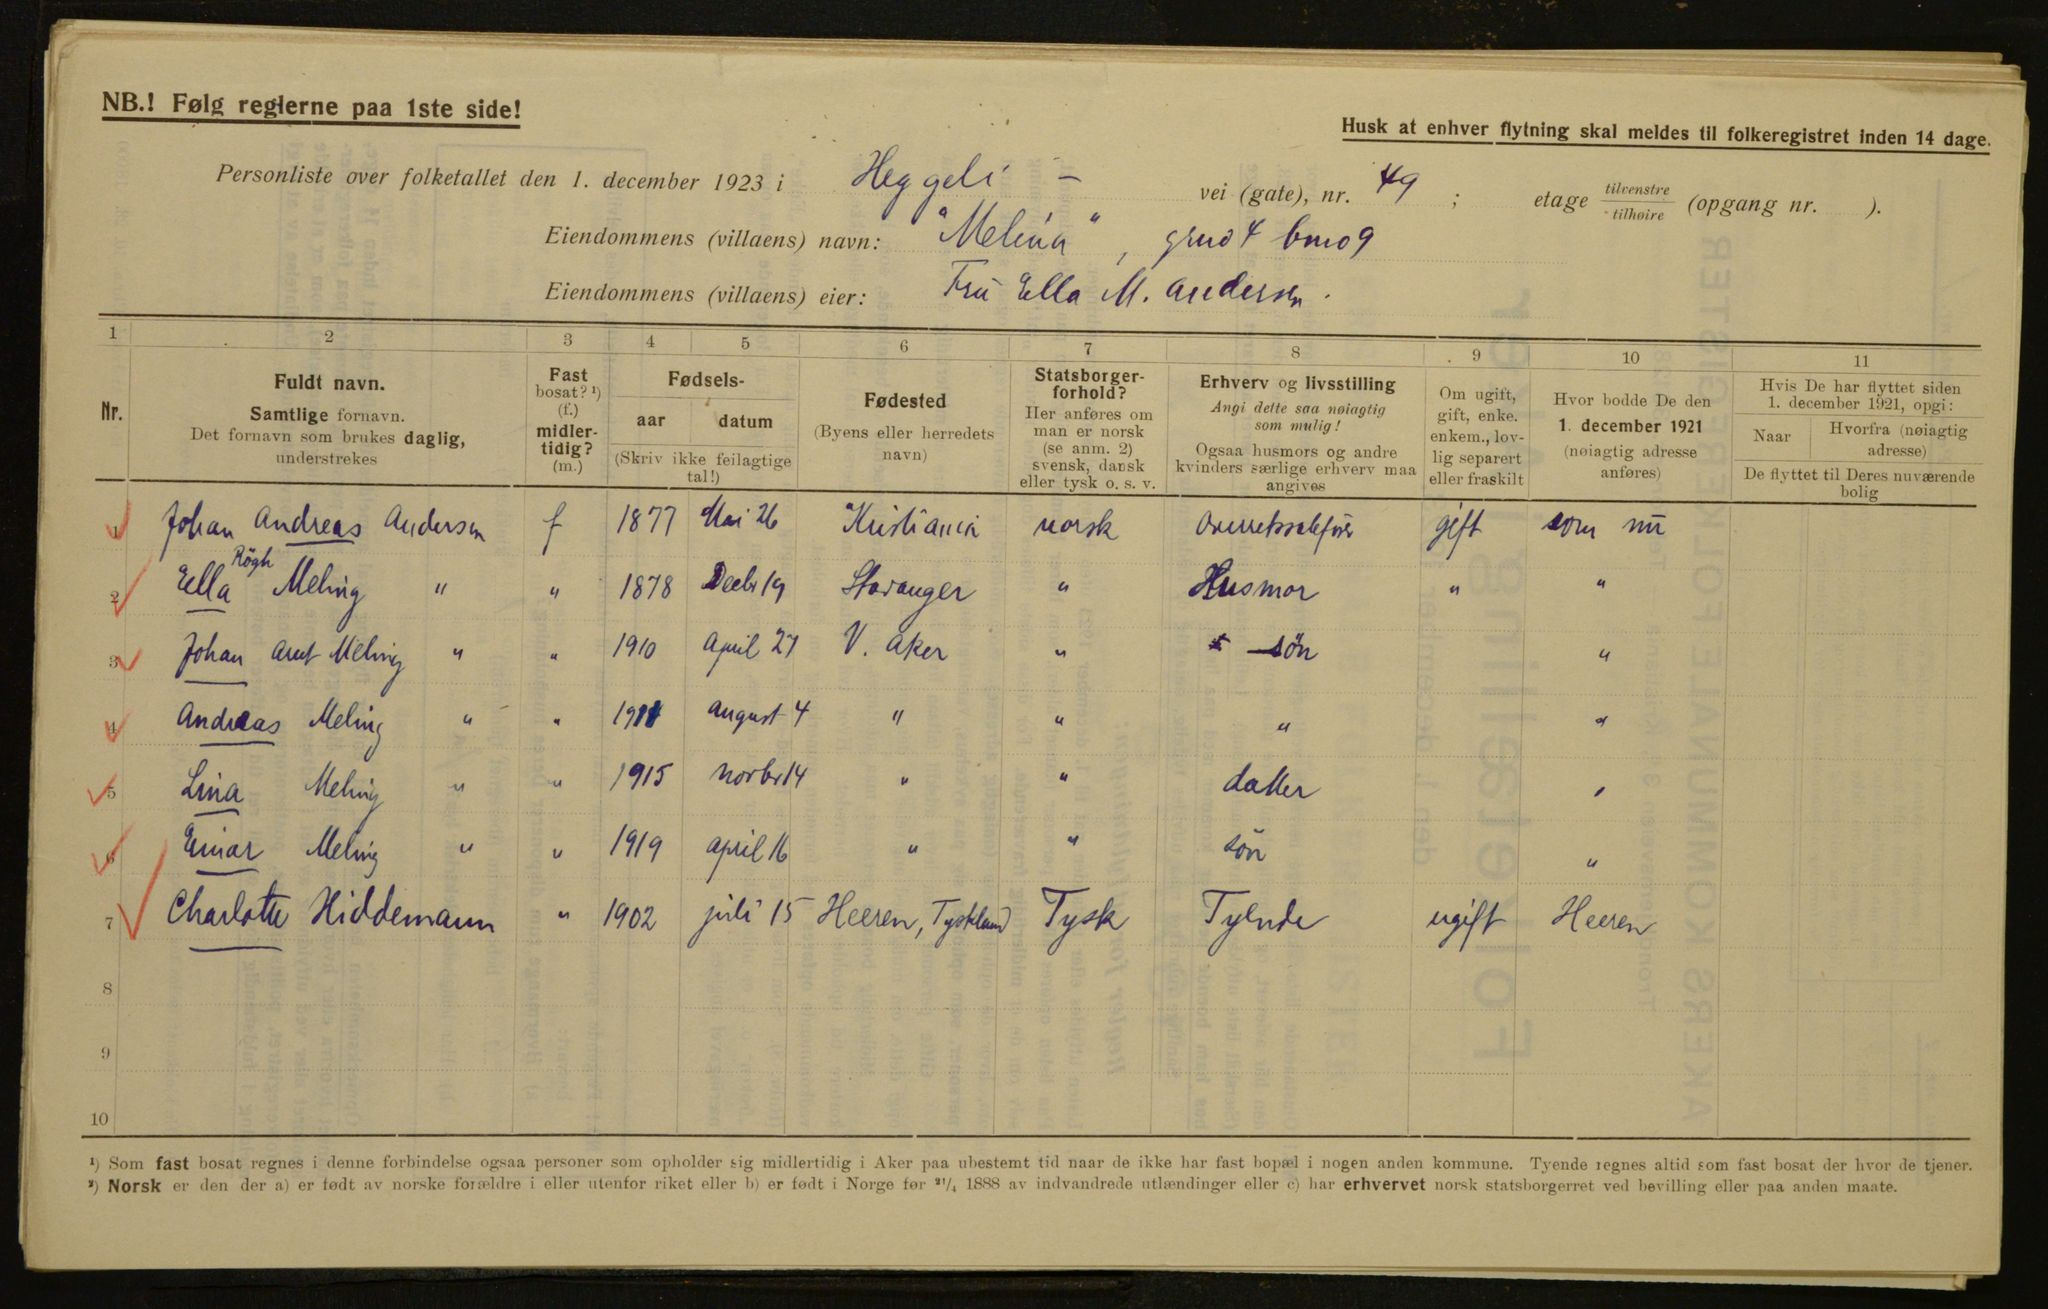 NB.! Følg reglerne paa 1ste side!
Husk at enhver flytning skal meldes til folkeregistret inden 14 dage.
Personliste over folketallet den 1. december 1923 i Heggeli - vei (gate), nr. 49 ; etage tilvenstre / tilhøire (opgang nr. ).
Eiendommens (villaens) navn: "Melina", gno 4 bno 9
Eiendommens (villaens) eier: Fru Ella M. Andersen.
1 2 3 4 5 6 7 8 9 10 11
Nr.
Fuldt navn.
Samtlige fornavn.
Det fornavn som brukes daglig,
understrekes
Fast
bosat? ¹)
(f.)
midler-
tidig?
(m.)
Fødsels-
aar datum
(Skriv ikke feilagtige
tal!)
Fødested
(Byens eller herredets
navn)
Statsborger-
forhold?
Her anføres om
man er norsk
(se anm. 2)
svensk, dansk
eller tysk o. s. v.
Erhverv og livsstilling
Angi dette saa nøiagtig
som mulig!
Ogsaa husmors og andre
kvinders særlige erhverv maa
angives
Om ugift,
gift, enke.
enkem., lov-
lig separert
eller fraskilt
Hvor bodde De den
1. december 1921
(nøiagtig adresse
anføres)
Hvis De har flyttet siden
1. december 1921, opgi:
Naar Hvorfra (nøiagtig
adresse)
De flyttet til Deres nuværende
bolig
1 Johan Andreas Andersen f 1877 Mai 26 Kristiania norsk Overretssakfører gift som nu
Røgh
2 Ella Meling " " 1878 Decbr 19 Stavanger " Husmor " "
3 Johan Arnt Meling " " 1910 April 27 V. Aker " søn "
4 Andreas Meling " " 1911 august 4 " " " "
5 Lina Meling " " 1915 novbr 14 " " datter "
6 Einar Meling " " 1919 april 16 " " søn "
7 Charlotte Hiddemann " 1902 juli 15 Heeren, Tyskland Tysk Tyende ugift Heeren
8
9
10
¹) Som fast bosat regnes i denne forbindelse ogsaa personer som opholder sig midlertidig i Aker paa ubestemt tid naar de ikke har fast bopæl i nogen anden kommune. Tyende regnes altid som fast bosat der hvor de tjener.
²) Norsk er den der a) er født av norske forældre i eller utenfor riket eller b) er født i Norge før ²¹/₄ 1888 av indvandrede utlændinger eller c) har erhvervet norsk statsborgerret ved bevilling eller paa anden maate.